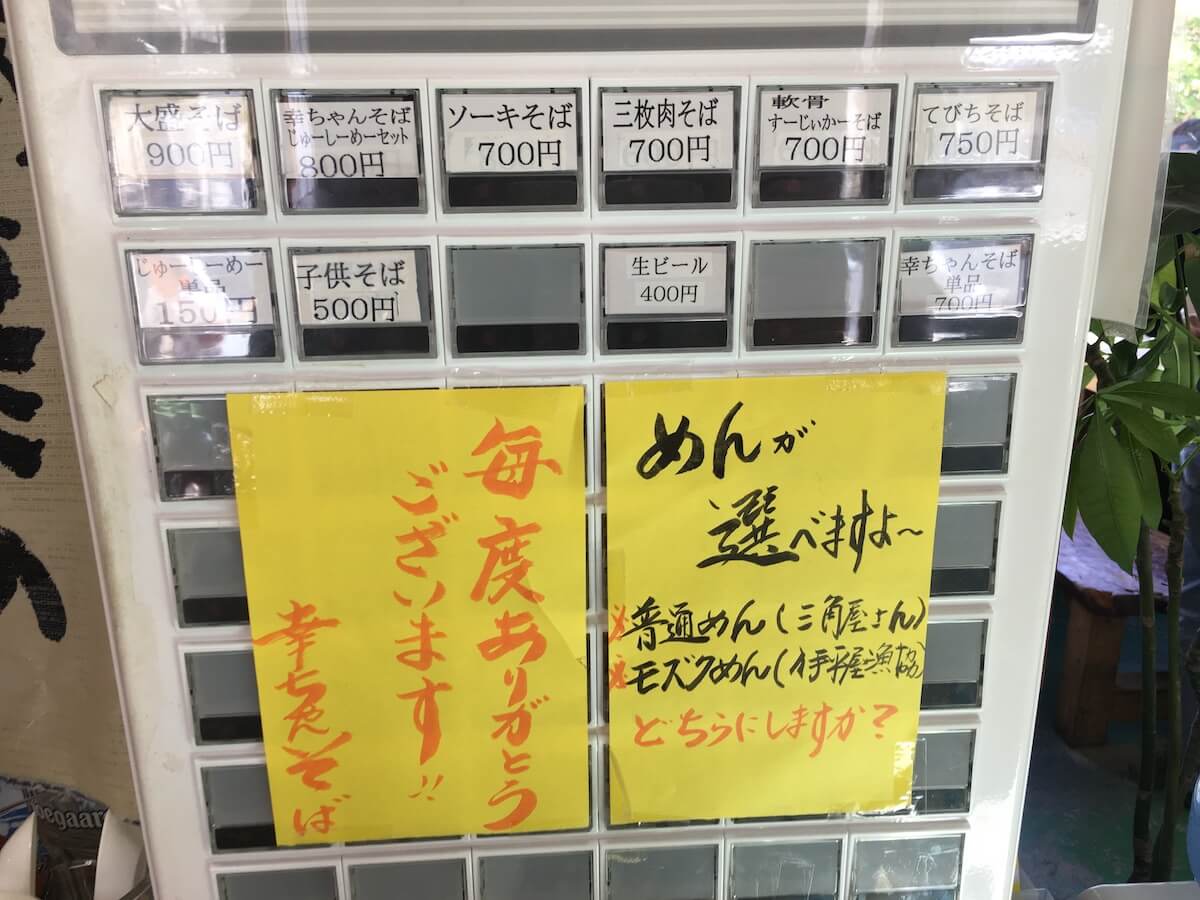 大盛そば
900円
幸ちゃんそば
じゅーしーめーセット
800円
ソーキそば
700円
三枚肉そば
700円
軟骨
すーじぃかーそば
700円
てびちそば
750円
じゅーしーめー
単品
150円
子供そば
500円
生ビール
400円
幸ちゃんそば
単品
700円
毎度ありがとう
ございます!!
幸ちゃんそば
めんが
選べますよ〜
※普通めん(三角屋さん)
※モズクめん(伊平屋漁協)
どちらにしますか?
egaar